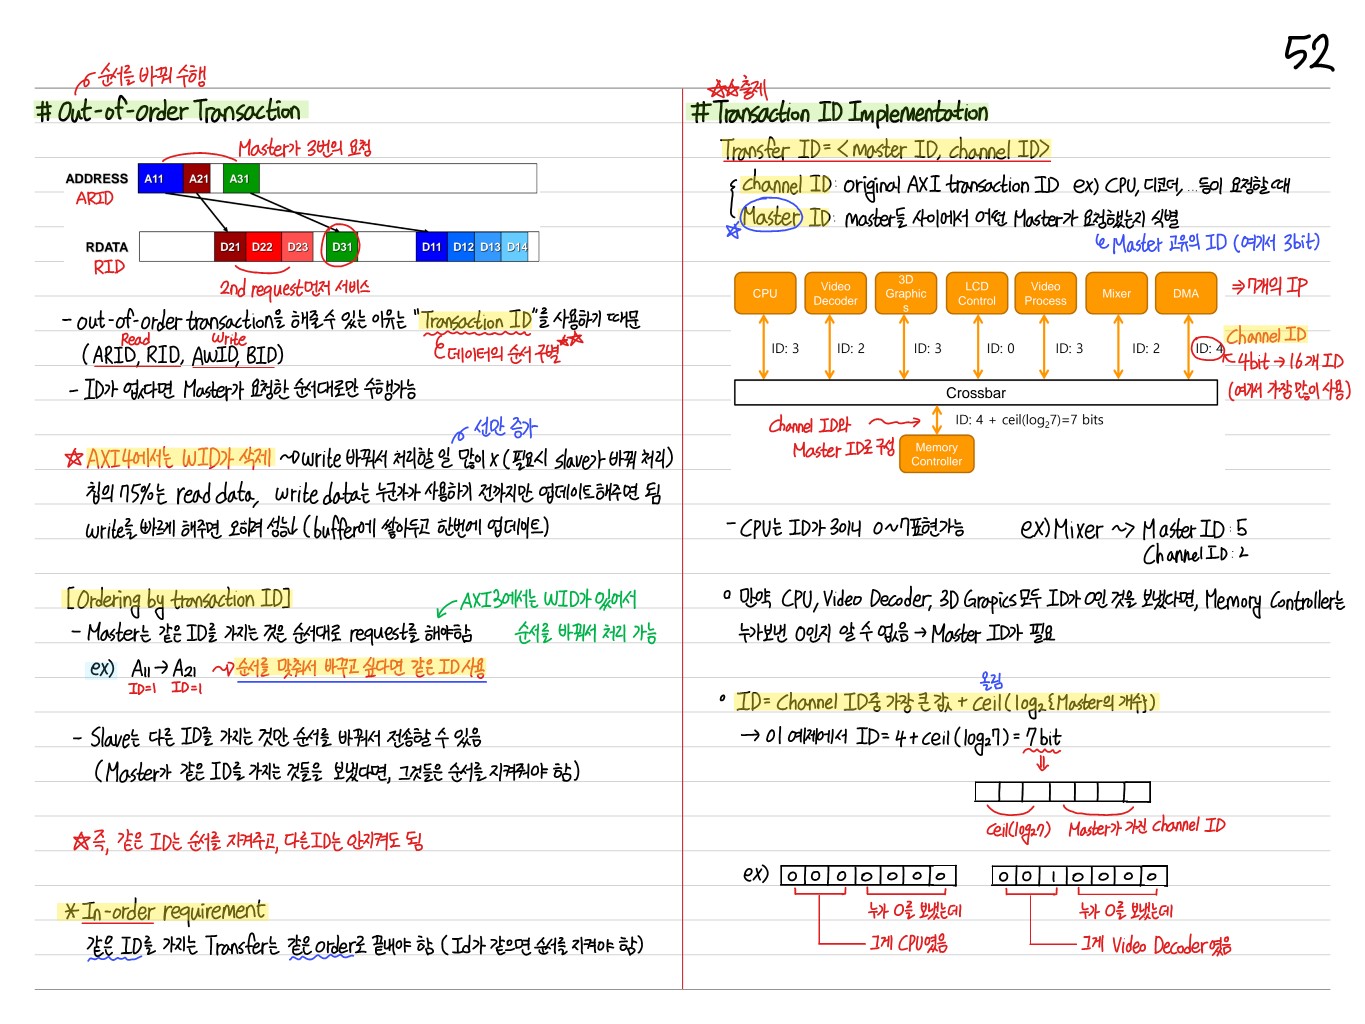 52
순서를 바꿔 수행
# Out-of-order Transaction
Master가 3번의 요청
ADDRESS A11 A21 A31
ARID
RDATA D21 D22 D23 D31 D11 D12 D13 D14
RID
2nd request먼저 서비스
- out-of-order transaction을 해줄수 있는 이유는 "Transaction ID"를 사용하기 때문
Read Write
(ARID, RID, AWID, BID) 데이터의 순서 구별 ☆☆
- ID가 없다면 Master가 요청한 순서대로만 수행가능
선만 증가
☆ AXI4에서는 WID가 삭제 ~> write 바꿔서 처리할 일 많이 x (필요시 slave가 바꿔 처리)
칩의 75%는 read data, write data는 누군가가 사용하기 전까지만 업데이트해주면 됨
write를 빠르게 해주면 오히려 성능↓ (buffer에 쌓아두고 한번에 업데이트)
[Ordering by transaction ID]
AXI3에서는 WID가 있어서
- Master는 같은 ID를 가지는 것은 순서대로 request를 해야함 순서를 바꿔서 처리 가능
ex) A11 → A21 ~> 순서를 맞춰서 바꾸고 싶다면 같은 ID 사용
ID=1 ID=1
- Slave는 다른 ID를 가지는 것만 순서를 바꿔서 전송할 수 있음
(Master가 같은 ID를 가지는 것들을 보냈다면, 그것들은 순서를 지켜줘야 함)
☆즉, 같은 ID는 순서를 지켜주고, 다른ID는 안지켜도 됨
* In-order requirement
같은 ID를 가지는 Transfer는 같은 order로 끝내야 함 (Id가 같으면 순서를 지켜야 함)
☆☆출제
# Transaction ID Implementation
Transfer ID = <master ID, channel ID>
channel ID: original AXI transaction ID ex) CPU, 디코더, ...등이 요청할때
☆ Master ID: master들 사이에서 어떤 Master가 요청했는지 식별
Master 고유의 ID (여기서 3bit)
CPU
Video Decoder
3D Graphics
LCD Control
Video Process
Mixer
DMA
⇒ 7개의 IP
ID: 3 ID: 2 ID: 3 ID: 0 ID: 3 ID: 2 ID: 4
Channel ID
4bit → 16개 ID
(여기서 가장 많이 사용)
Crossbar
ID: 4 + ceil(log₂7)=7 bits
Channel ID와
Master ID로 구성
Memory Controller
- CPU는 ID가 3이니 0~7표현가능 ex) Mixer ~> Master ID: 5
Channel ID: 2
○ 만약 CPU, Video Decoder, 3D Grapics 모두 ID가 0인 것을 보냈다면, Memory Controller는
누가보낸 0인지 알 수 없음 → Master ID가 필요
올림
○ ID = Channel ID중 가장 큰 값 + ceil(log₂{Master의 개수})
→ 이 예제에서 ID = 4 + ceil(log₂7) = 7bit
⇓
ceil(log₂7) Master가 가진 Channel ID
ex) 0 0 0 0 0 0 0 0 0 1 0 0 0 0
누가 0를 보냈는데 누가 0를 보냈는데
그게 CPU였음 그게 Video Decoder였음